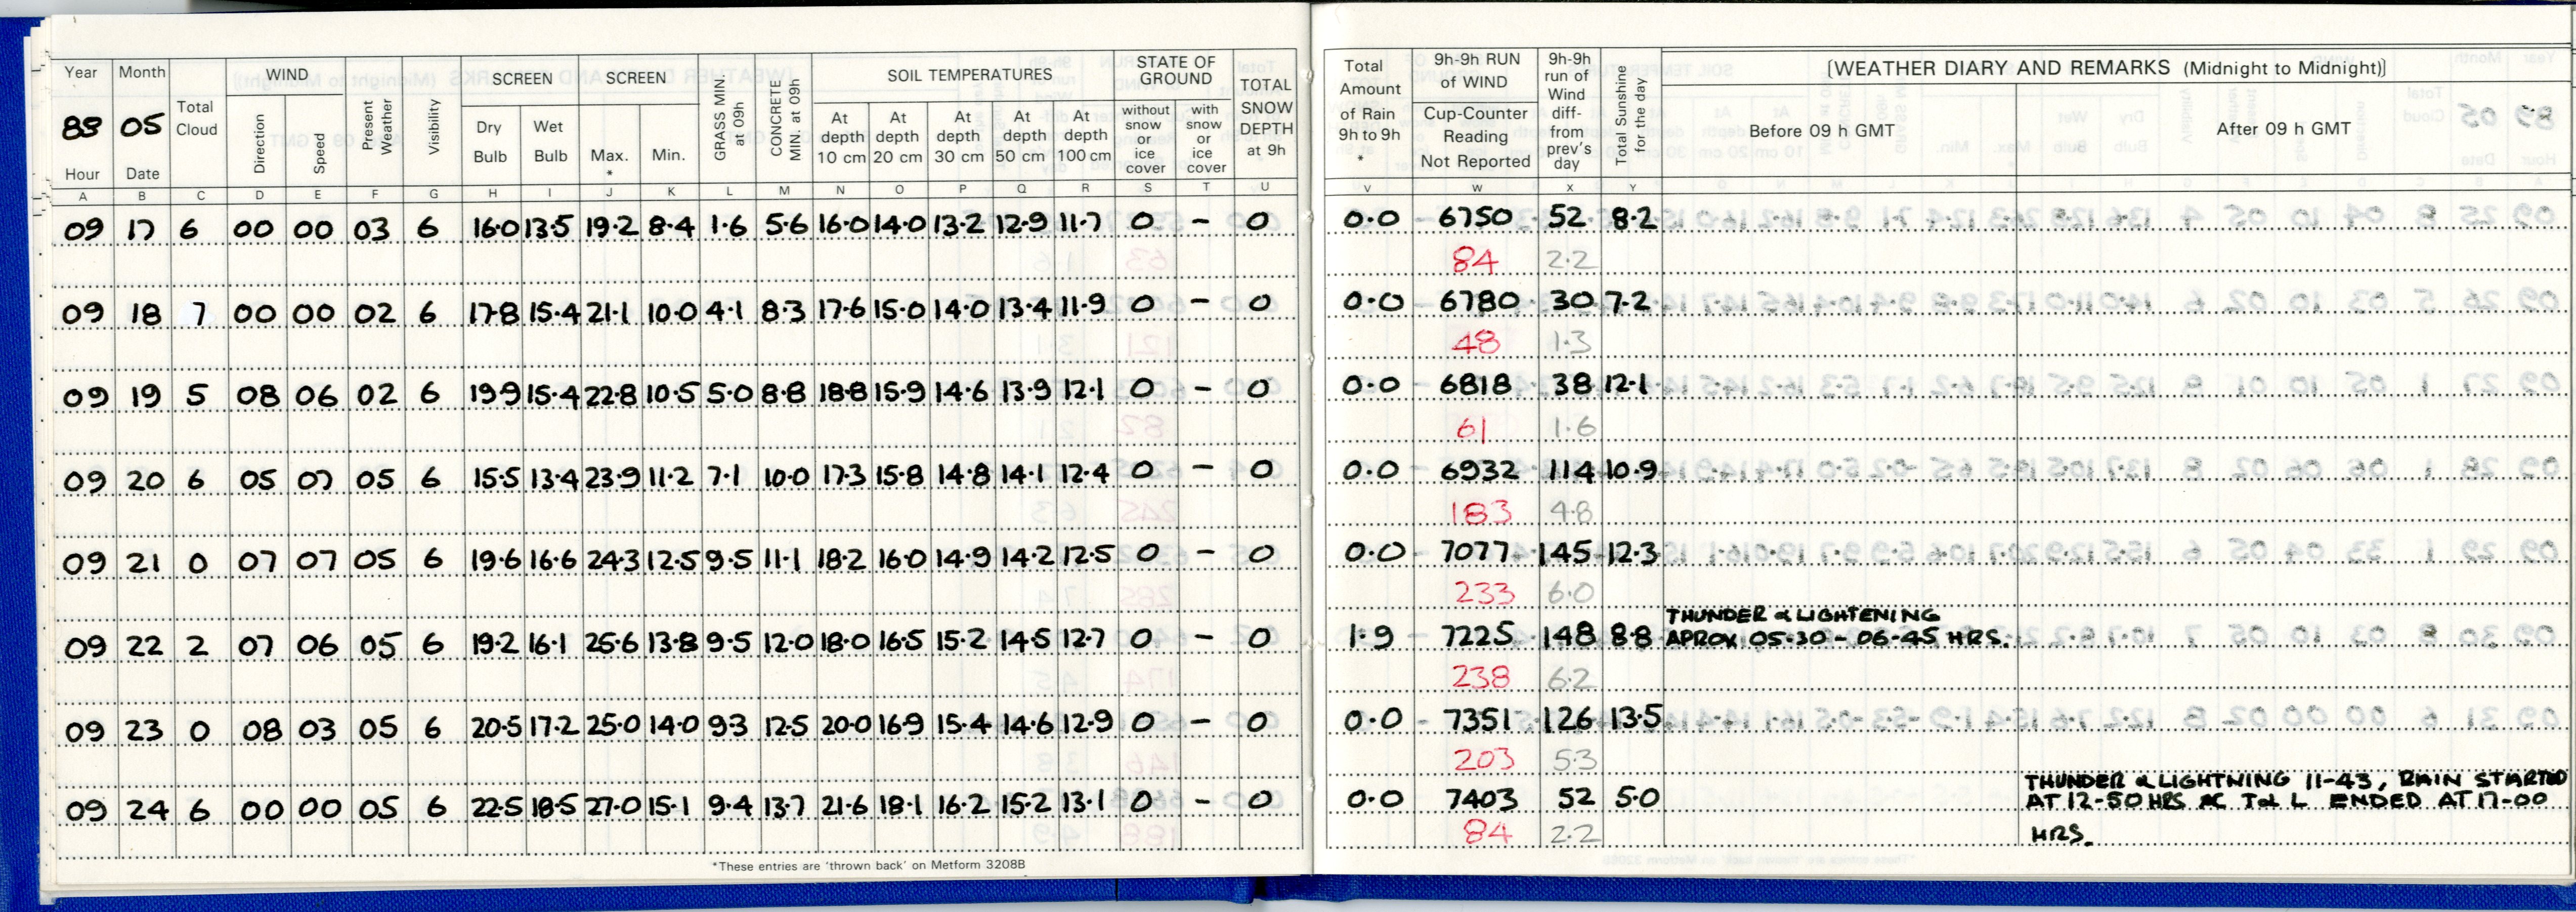 Year Month Total Cloud WIND Present Weather Visibility SCREEN SCREEN GRASS MIN at 09h CONCRETE MIN at 09h SOIL TEMPERATURES STATE OF GROUND TOTAL SNOW DEPTH at 9h Total Amount of Rain 9h to 9h * 9h-9h RUN of WIND 9h-9h run of Wind diff- from prev's day Total Sunshine for the day [WEATHER DIARY AND REMARKS (Midnight to Midnight)]
05 Direction Speed Dry Bulb Wet Bulb Max. * Min. At depth 10 cm At depth 20 cm At depth 30 cm At depth 50 cm At depth 100 cm without snow or ice cover with snow or ice cover Cup-Counter Reading Not Reported Before 09 h GMT After 09 h GMT
Hour Date
A B C D E F G H I J K L M N O P Q R S T U V W X Y
09 17 6 00 00 03 6 16.0 13.5 19.2 8.4 1.6 5.6 16.0 14.0 13.2 12.9 11.7 0 – 0 0.0 6750 52 8.2
84 2.2
09 18 7 00 00 02 6 17.8 15.4 21.1 10.0 4.1 8.3 17.6 15.0 14.0 13.4 11.9 0 – 0 0.0 6780 30 7.2
48 1.3
09 19 5 08 06 02 6 19.9 15.4 22.8 10.5 5.0 8.8 18.8 15.9 14.6 13.9 12.1 0 – 0 0.0 6818 38 12.1
61 1.6
09 20 6 05 07 05 6 15.5 13.4 23.9 11.2 7.1 10.0 17.3 15.8 14.8 14.1 12.4 0 – 0 0.0 6932 114 10.9
183 4.8
09 21 0 07 07 05 6 19.6 16.6 24.3 12.5 9.5 11.1 18.2 16.0 14.9 14.2 12.5 0 – 0 0.0 7077 145 12.3
233 6.0
THUNDER & LIGHTENING
09 22 2 07 06 05 6 19.2 16.1 25.6 13.8 9.5 12.0 18.0 16.5 15.2 14.5 12.7 0 – 0 1.9 7225 148 8.8 APROX 05.30 – 06-45 HRS.
238 6.2
09 23 0 08 03 05 6 20.5 17.2 25.0 14.0 9.3 12.5 20.0 16.9 15.4 14.6 12.9 0 – 0 0.0 7351 126 13.5
203 5.3
THUNDER & LIGHTNING 11-43, RAIN STARTED
09 24 6 00 00 05 6 22.5 18.5 27.0 15.1 9.4 13.7 21.6 18.1 16.2 15.2 13.1 0 – 0 0.0 7403 52 5.0 AT 12-50 HRS T & L ENDED AT 17-00
84 2.2 HRS.
*These entries are 'thrown back' on Metform 3208B